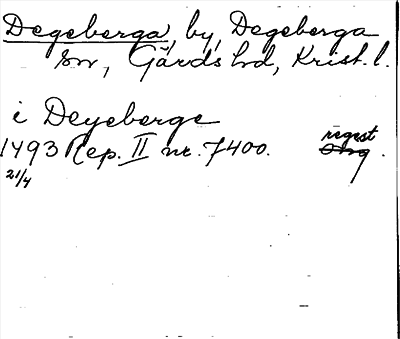 Degeberga, by, Degeberga
sn, Gärds hd, Krist. l.
i Deyeberge
1493 Rep. II nr. 7400. regest
21/4